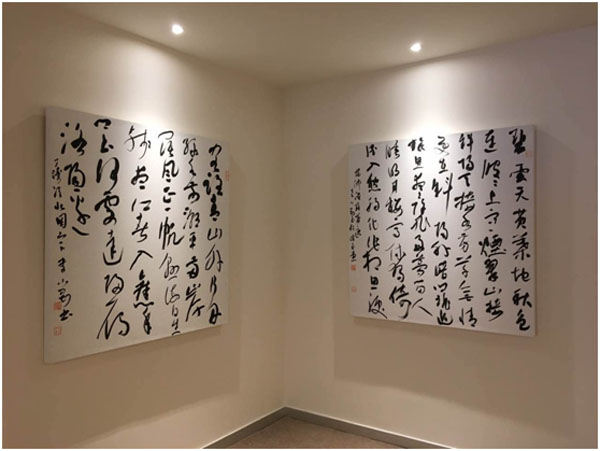 客路青山外行舟
绿水前潮平两岸
阔风正一帆悬海日生
残夜江春入旧年
乡书何处达归雁
洛阳边
碧云天黄叶地秋色
连波波上寒烟翠山映
斜阳天接水芳草无情
更在斜阳外黯乡魂追
旅思夜夜除非好梦留人
睡明月楼高休独倚
酒入愁肠化作相思泪